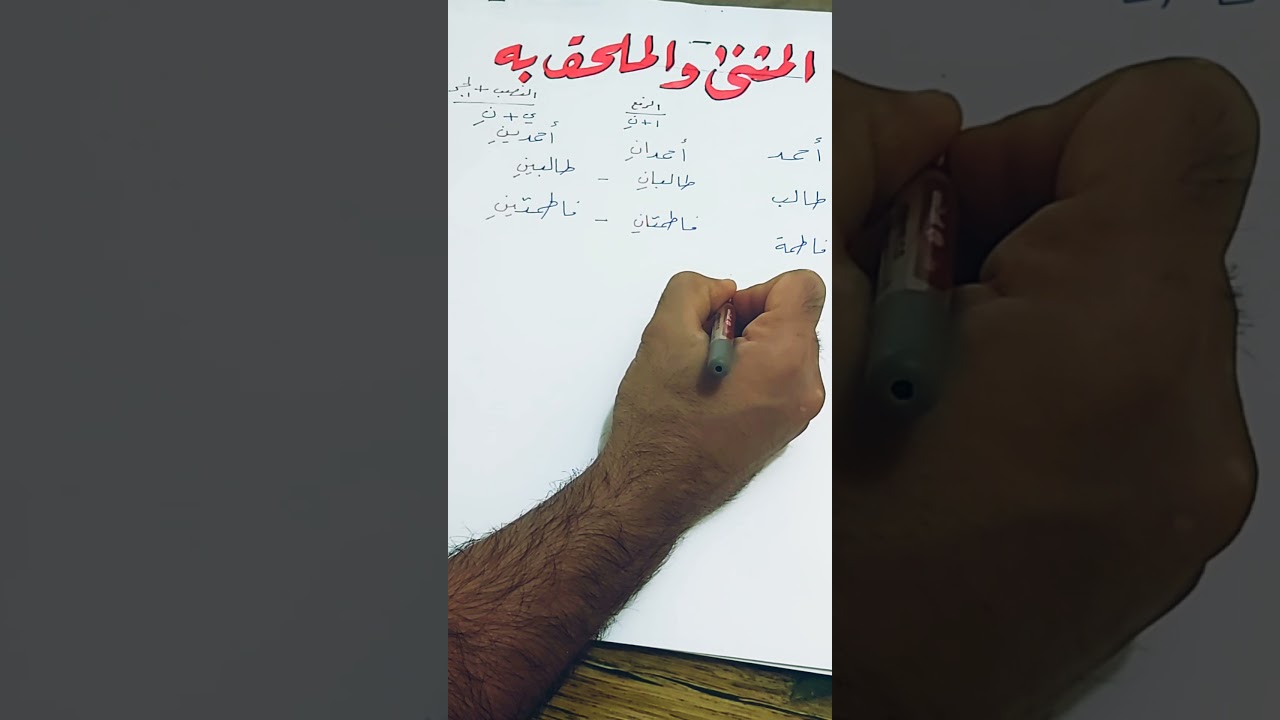 المثنى والملحق به
الرفع النصب + الجر
ا + نِ ي + نِ
أحمد أحمدانِ أحمدينِ
طالب طالبانِ - طالبينِ
فاطمة فاطمتانِ - فاطمتينِ